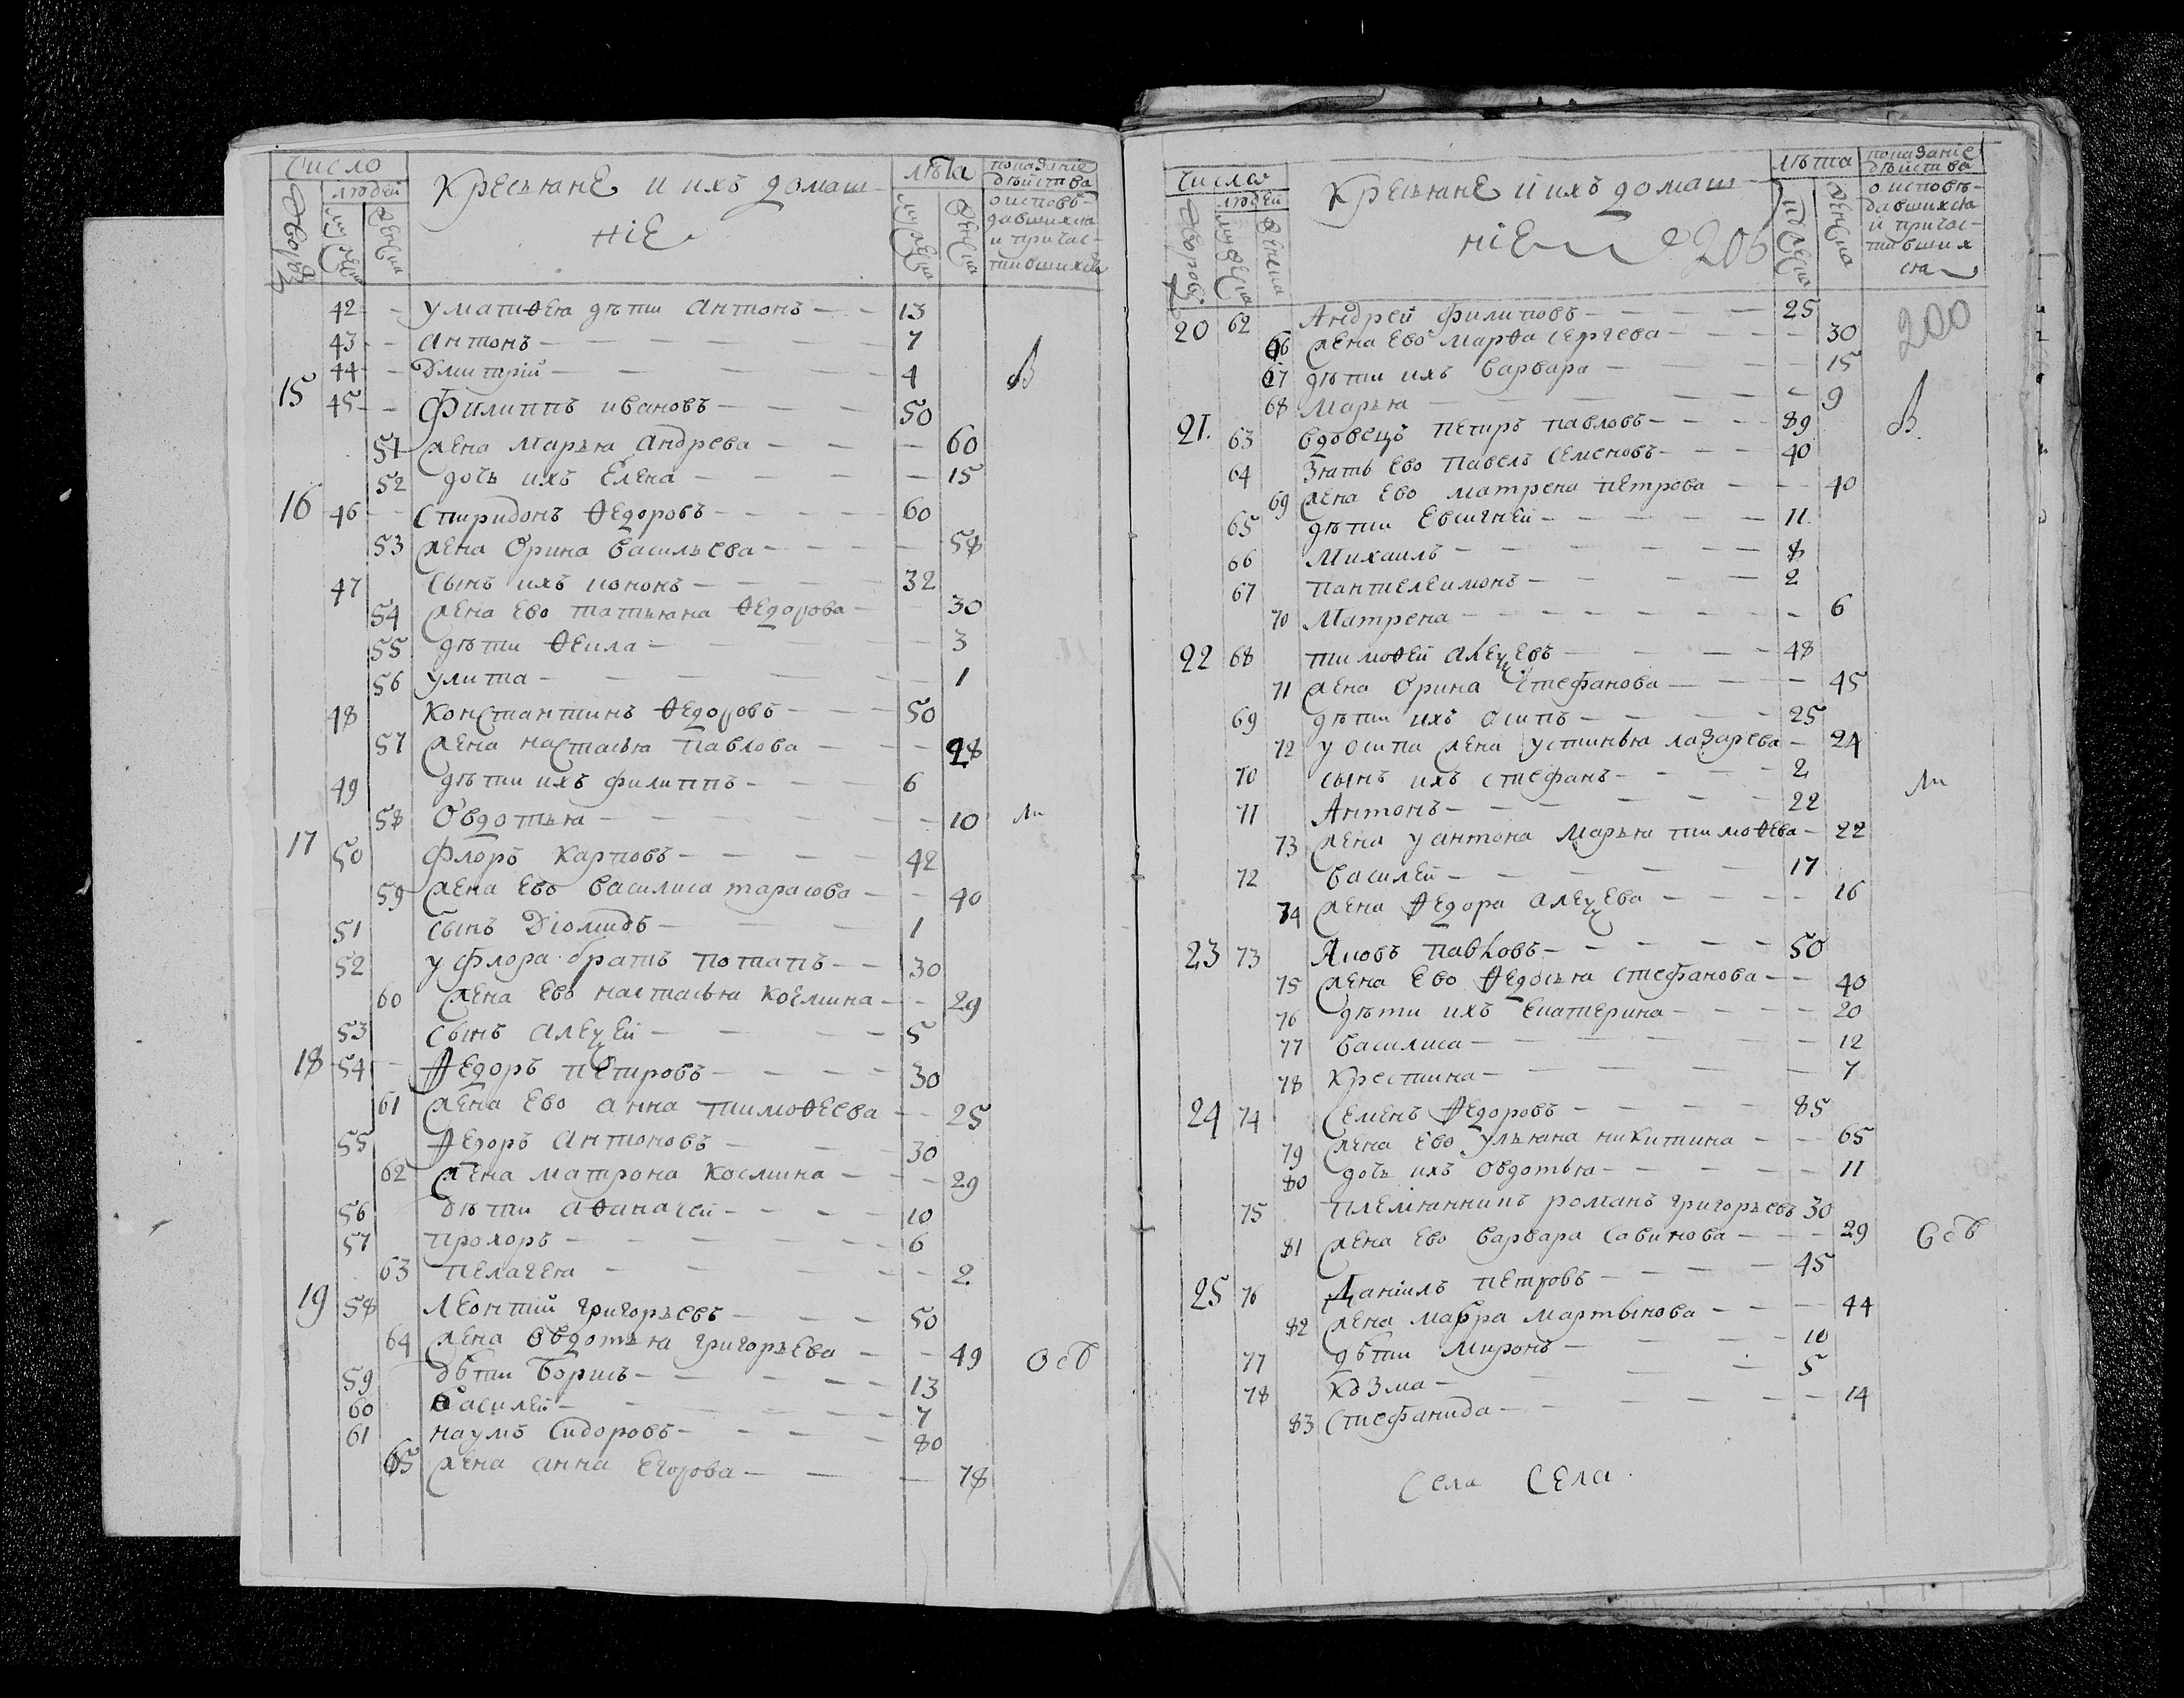 Число
людей
Крестьяне и ихъ домаш-
ніе
лѣта
показаніе
дѣйства
о исповѣ-
давшихся
и причас-
тившихся
42 - - у матѳея дѣти Антонъ - - 13
43 - - антонъ - - - - - 7
44 - - Дмитрій - - - - 4
15 45 - - Филиппъ ивановъ - - - 50
51 жена марья андрева - - - 60
52 дочь ихъ Елена - - - - 15
16 46 - - Спиридонъ Ѳедоровъ - - - 60
53 жена Орина васильева - - - - 58
47 сынъ ихъ иононъ - - - - 32
54 жена Ево татьяна Ѳедорова - 30
55 дѣти Ѳекла - - - - 3
56 улита - - - - - 1
48 Константинъ Ѳедоровъ - - - 50
57 жена настасья Павлова - - - 48
49 дѣти ихъ филиппъ - - - 6
58 Овдотья - - - - - 10
17 50 Флоръ карповъ - - - - 42
59 жена Ево василиса тарасова - - 40
51 сынъ Діомидъ - - - 1
52 у Флора братъ потапъ - - 30
60 жена Ево настасья Козмина - - 29
53 сынъ алеѯей - - - - 5
18 54 - - Ѳедоръ петровъ - - - - 30
61 жена Ево анна тимоѳеева - - 25
55 Ѳедоръ антоновъ - - - 30
62 жена матрона Козмина - - - 29
56 дѣти аѳанасей - - - - 10
57 прохоръ - - - - - 6
63 пелагея - - - - - 2
19 58 Леонтій григорьевъ - - - 50
64 жена Овдотья григорьева - - 49
59 дѣти Борисъ - - - - 13
60 Василей - - - - - 7
61 наумъ Сидоровъ - - - - 80
65 жена анна Егорова - - - 78
Число
людей
Крестьяне и ихъ домаш-
ніе 206
лѣта
показаніе
дѣйства
о исповѣ-
давшихся
и причас-
тивших
ся
200
20 62 Андрей филиповъ - - - - 25
66 жена Ево марѳа сергева - - - - 30
67 дѣти ихъ варвара - - - - 15
68 Марья - - - - - 9
21. 63 вдовецъ петръ павловъ - - - 89
64 Зять Ево Павелъ Семеновъ - - - 40
69 жена Ево матрена петрова - - - 40
65 дѣти Евсигней - - - - 11
66 Михаилъ - - - - - 8
67 пантелеимонъ - - - - 2
70 Матрена - - - - - - 6
22 68 тимоѳей алеѯевъ - - - - 48
71 жена Орина Стефанова - - - 45
69 дѣти ихъ осипъ - - - - 25
72 у осипа жена устинья лазарева - 24
70 сынъ ихъ стефанъ - - - - 2
71 Антонъ - - - - - 22
73 жена у антона марья тимоѳева - 22
72 василей - - - - - 17
74 жена Ѳедора алеѯева - - - - 16
23 73 Яковъ Павловъ - - - - 50
75 жена Ево Ѳедосья стефанова - - 40
76 дѣти ихъ Екатерина - - - - 20
77 василиса - - - - - - 12
78 Крестина - - - - - 7
24 74 Семенъ Ѳедоровъ - - - - 85
79 жена Ево ульяна никитина - - - 65
80 дочь ихъ овдотья - - - - - 11
75 племянникъ романъ григорьевъ 30
81 жена Ево варвара савинова - - - 29
25 76 Даніилъ петровъ - - - - 45
82 жена мавра мартынова - - - 44
77 дѣти Миронъ - - - 10
78 Козма - - - 5
83 Стефанида - - - - - 14
Села Села